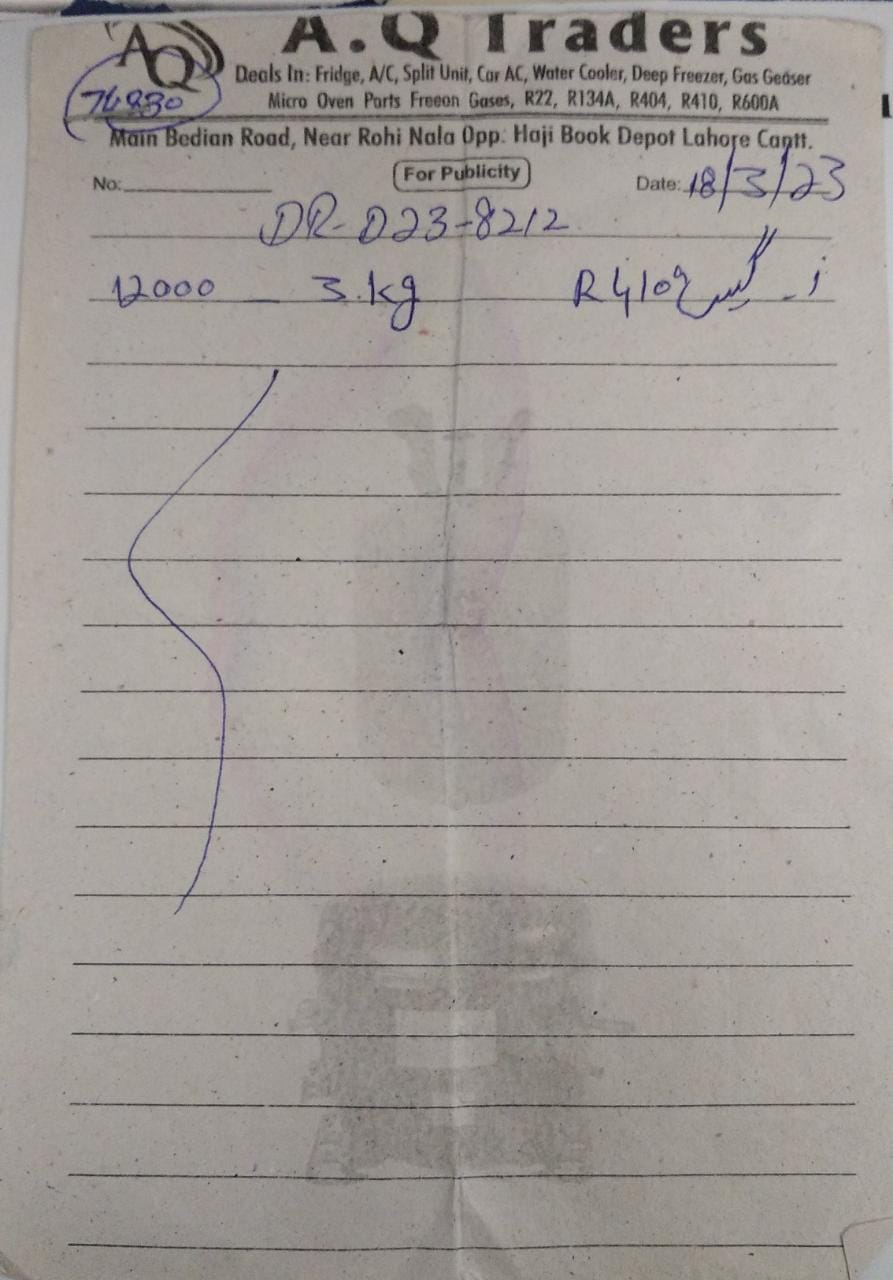 A.Q Traders
AQ
Deals In: Fridge, A/C, Split Unit, Car AC, Water Cooler, Deep Freezer, Gas Geaser
Micro Oven Parts Freeon Gases, R22, R134A, R404, R410, R600A
Main Bedian Road, Near Rohi Nala Opp: Haji Book Depot Lahore Cantt.
No:
For Publicity
Date: 18/3/23
DR-D23-8212
12000 — 3.kg R410 گیس